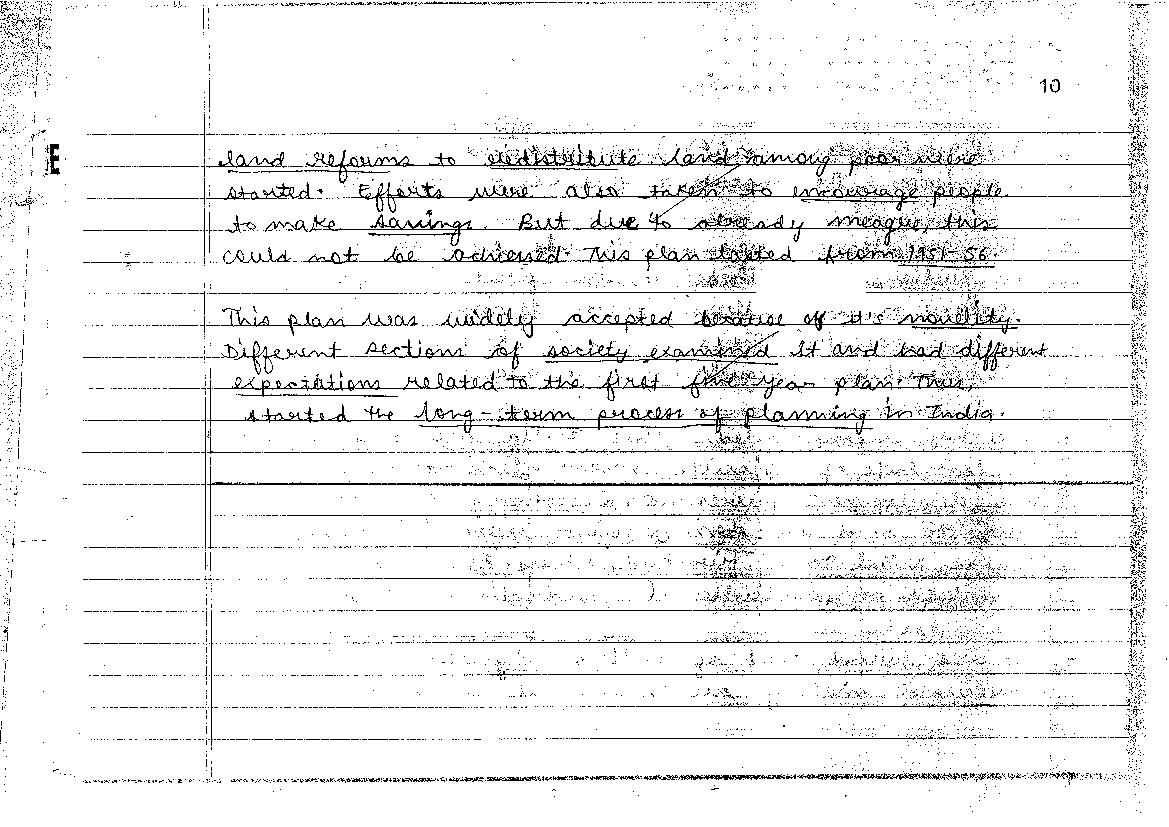 10
E
land reforms to redistribute land among poor were
started. Efforts were also taken to encourage people
to make savings. But due to already meague, this
could not be achieved. This plan lasted from 1951-56.
This plan was widely accepted because of it's novelity.
Different sections of society examined it and had different
expectations related to the first five year plan. Thus,
started the long-term process of planning in India.